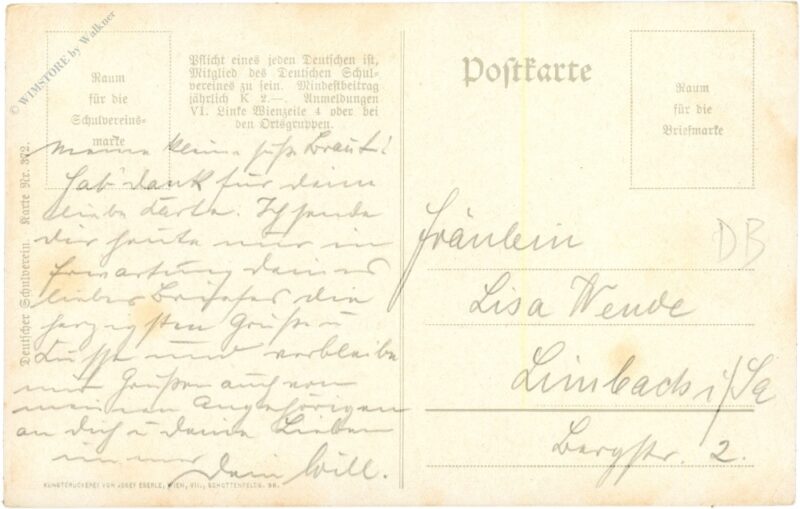 © WIMSTORE by Walkner
Raum
für die
Schulvereins-
marke
Pflicht eines jeden Deutschen ist,
Mitglied des Deutschen Schul-
vereines zu sein. Mindestbeitrag
jährlich K 2.—. Anmeldungen
VI. Linke Wienzeile 4 oder bei
den Ortsgruppen.
Postkarte
Raum
für die
Briefmarke
Deutscher Schulverein. Karte Nr. 372.
Meine kleine süße Braut!
Hab' dank für deine
liebe Karte. Ich sende
dir heute nur in
Erwartung deines
lieben Briefes die
herzigsten Grüße u
Küsse und verbleibe
mit Grüßen auch von
meinen Angehörigen
an dich u deine Lieben
immer Dein Will.
Fräulein
DB
Lisa Wende
Limbach i/Sa
Bergstr. 2.
KUNSTDRUCKEREI VON JOSEF EBERLE, WIEN, VII., SCHOTTENFELDG. 38.